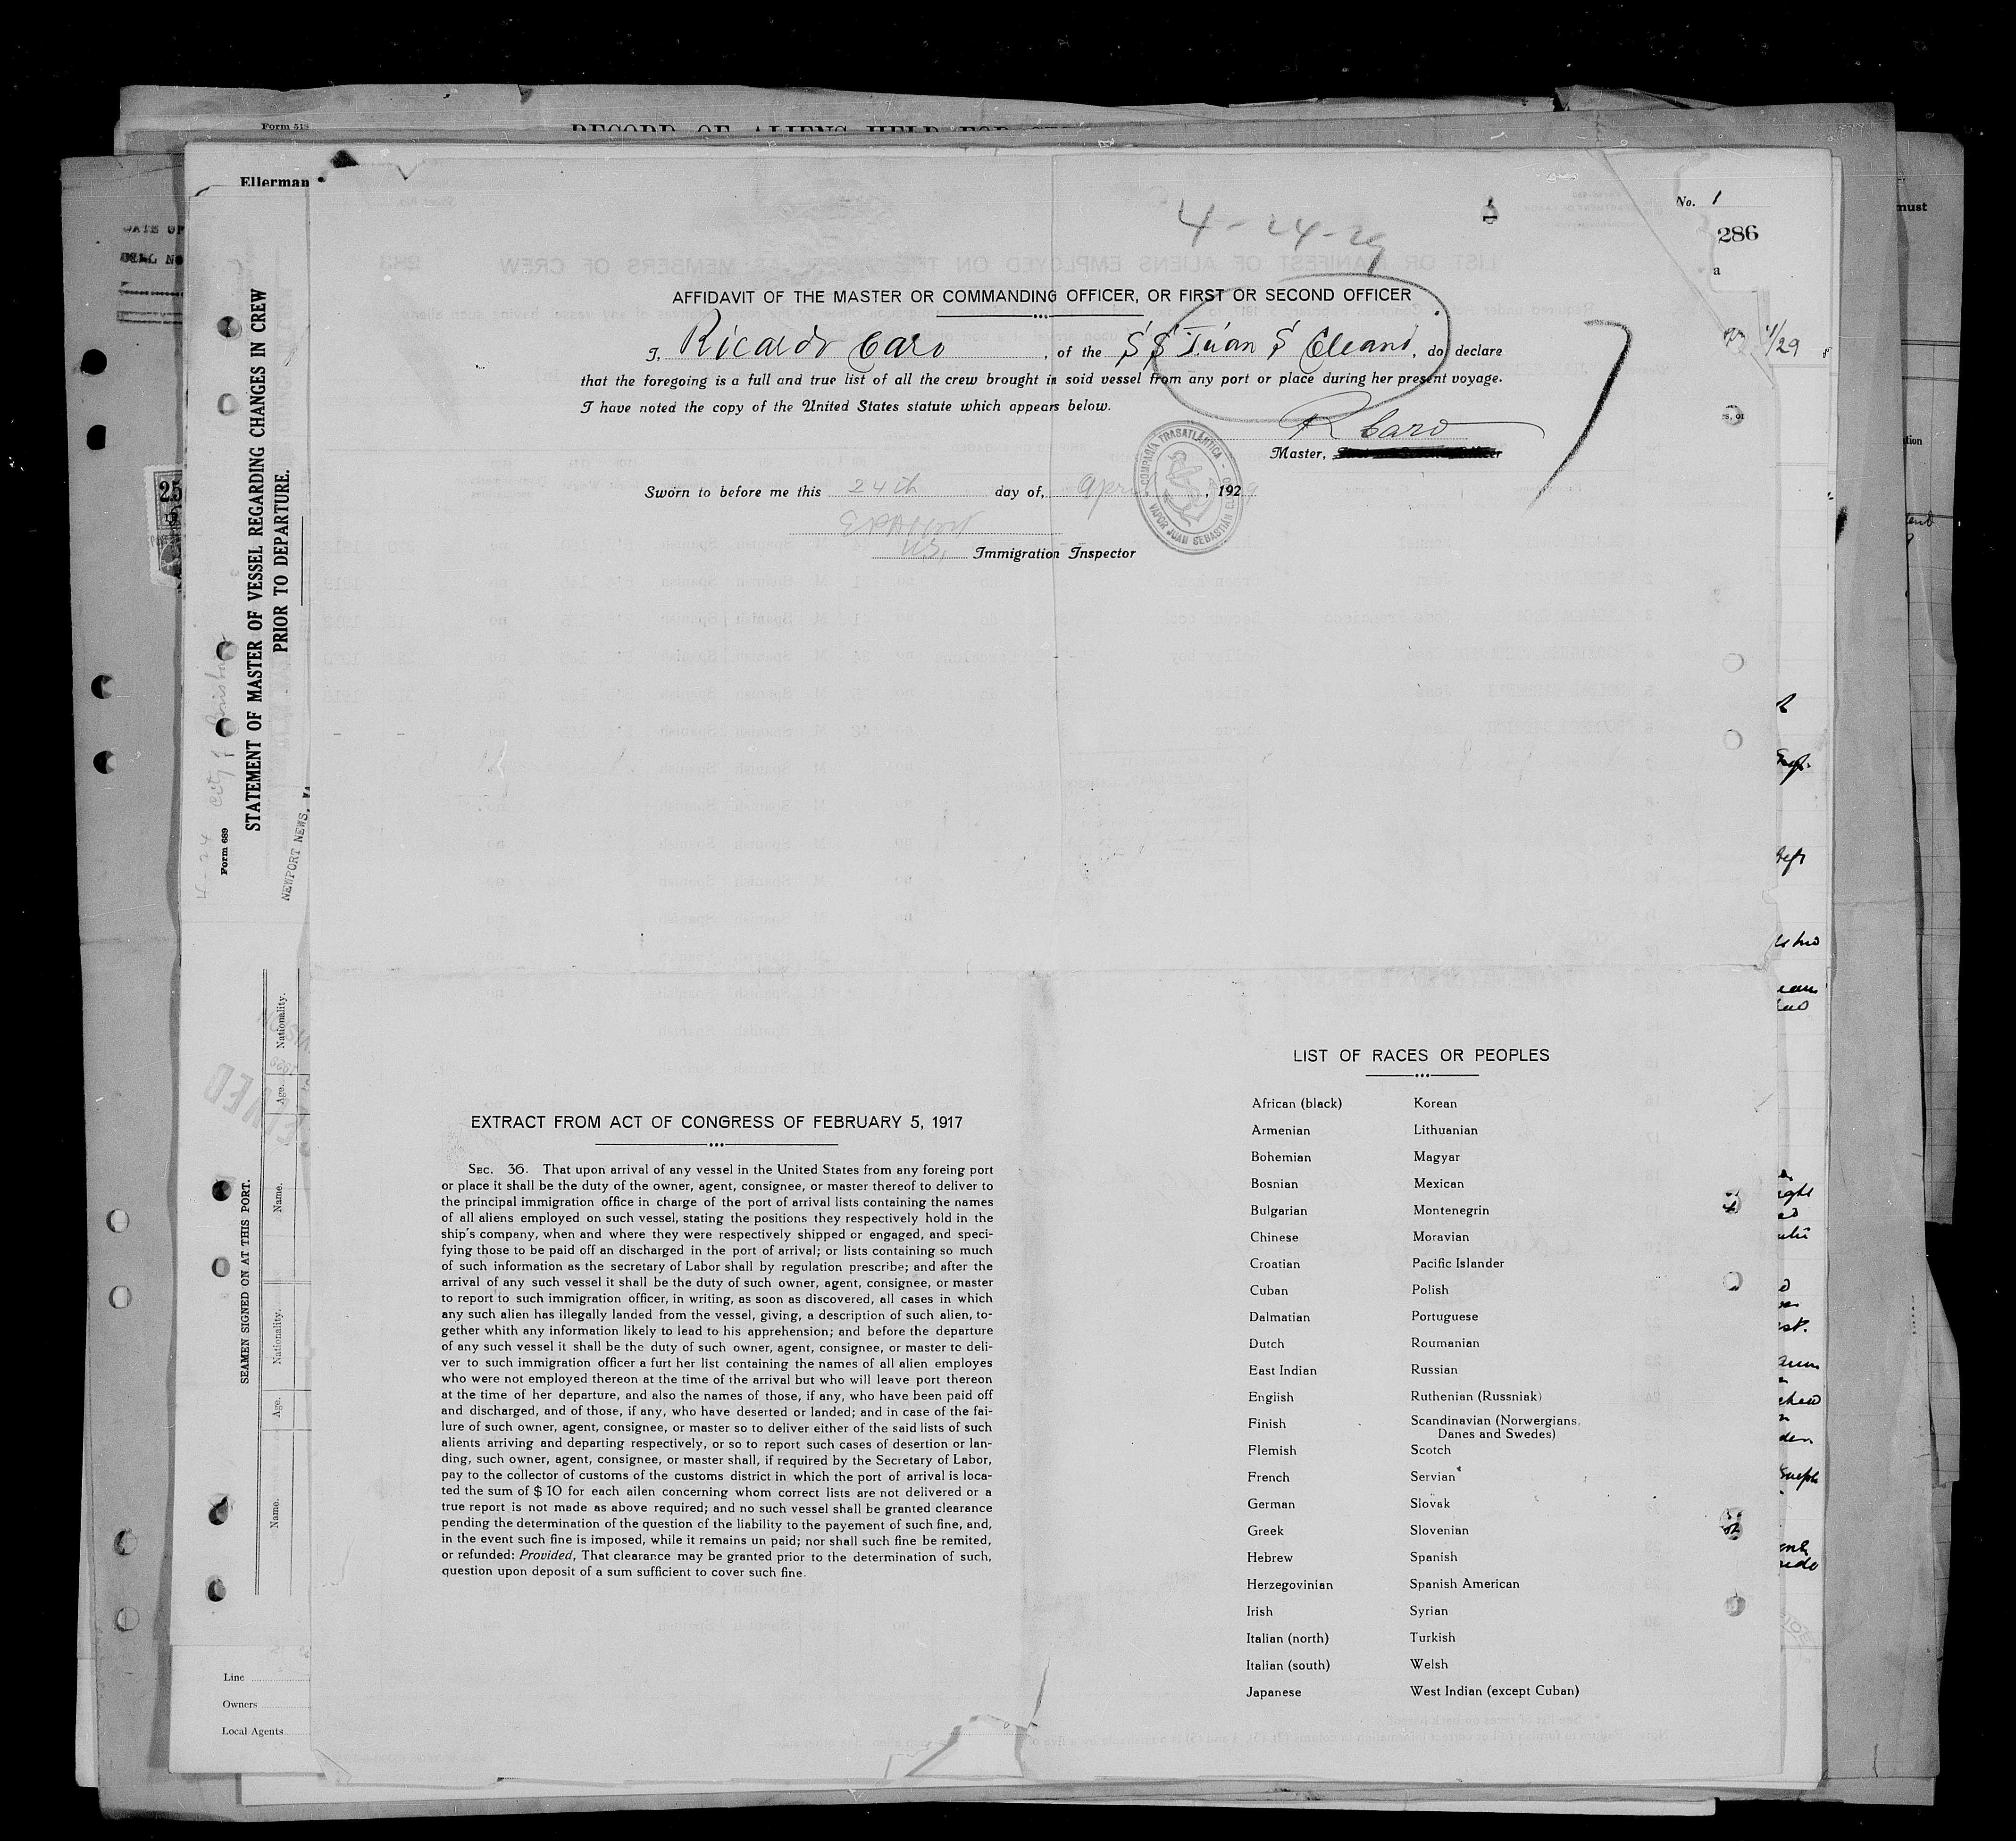 Form 518
RECORD OF ALIENS HELD FOR
Ellerman
DATE OF
must
4-24-29
No. 1
286
a
AFFIDAVIT OF THE MASTER OR COMMANDING OFFICER, OR FIRST OR SECOND OFFICER
I, Ricardo Caro, of the SS Juan S Elcano, do declare
that the foregoing is a full and true list of all the crew brought in soid vessel from any port or place during her present voyage.
I have noted the copy of the United States statute which appears below.
4/29
R Caro
Master,
COMPAÑIA TRASATLANTICA
VAPOR JUAN SEBASTIAN ELCANO
Sworn to before me this 24th day of, April, 1929
U.S. Immigration Inspector
25
tion
STATEMENT OF MASTER OF VESSEL REGARDING CHANGES IN CREW
PRIOR TO DEPARTURE.
Form 689
4-24 City of
NEWPORT NEWS, VA
SEAMEN SIGNED ON AT THIS PORT.
Name.
Age.
Nationality.
Name.
Age.
Nationality.
Line
Owners
Local Agents
EXTRACT FROM ACT OF CONGRESS OF FEBRUARY 5, 1917
SEC. 36. That upon arrival of any vessel in the United States from any foreing port
or place it shall be the duty of the owner, agent, consignee, or master thereof to deliver to
the principal immigration office in charge of the port of arrival lists containing the names
of all aliens employed on such vessel, stating the positions they respectively hold in the
ship's company, when and where they were respectively shipped or engaged, and speci-
fying those to be paid off an discharged in the port of arrival; or lists containing so much
of such information as the secretary of Labor shall by regulation prescribe; and after the
arrival of any such vessel it shall be the duty of such owner, agent, consignee, or master
to report to such immigration officer, in writing, as soon as discovered, all cases in which
any such alien has illegally landed from the vessel, giving, a description of such alien, to-
gether whith any information likely to lead to his apprehension; and before the departure
of any such vessel it shall be the duty of such owner, agent, consignee, or master to deli-
ver to such immigration officer a furt her list containing the names of all alien employes
who were not employed thereon at the time of the arrival but who will leave port thereon
at the time of her departure, and also the names of those, if any, who have been paid off
and discharged, and of those, if any, who have deserted or landed; and in case of the fai-
lure of such owner, agent, consignee, or master so to deliver either of the said lists of such
alients arriving and departing respectively, or so to report such cases of desertion or lan-
ding, such owner, agent, consignee, or master shall, if required by the Secretary of Labor,
pay to the collector of customs of the customs district in which the port of arrival is loca-
ted the sum of $ 10 for each ailen concerning whom correct lists are not delivered or a
true report is not made as above required; and no such vessel shall be granted clearance
pending the determination of the question of the liability to the payement of such fine, and,
in the event such fine is imposed, while it remains un paid; nor shall such fine be remited,
or refunded: Provided, That clearance may be granted prior to the determination of such,
question upon deposit of a sum sufficient to cover such fine.
LIST OF RACES OR PEOPLES
African (black) Korean
Armenian Lithuanian
Bohemian Magyar
Bosnian Mexican
Bulgarian Montenegrin
Chinese Moravian
Croatian Pacific Islander
Cuban Polish
Dalmatian Portuguese
Dutch Roumanian
East Indian Russian
English Ruthenian (Russniak)
Finish Scandinavian (Norwergians,
Danes and Swedes)
Flemish Scotch
French Servian
German Slovak
Greek Slovenian
Hebrew Spanish
Herzegovinian Spanish American
Irish Syrian
Italian (north) Turkish
Italian (south) Welsh
Japanese West Indian (except Cuban)